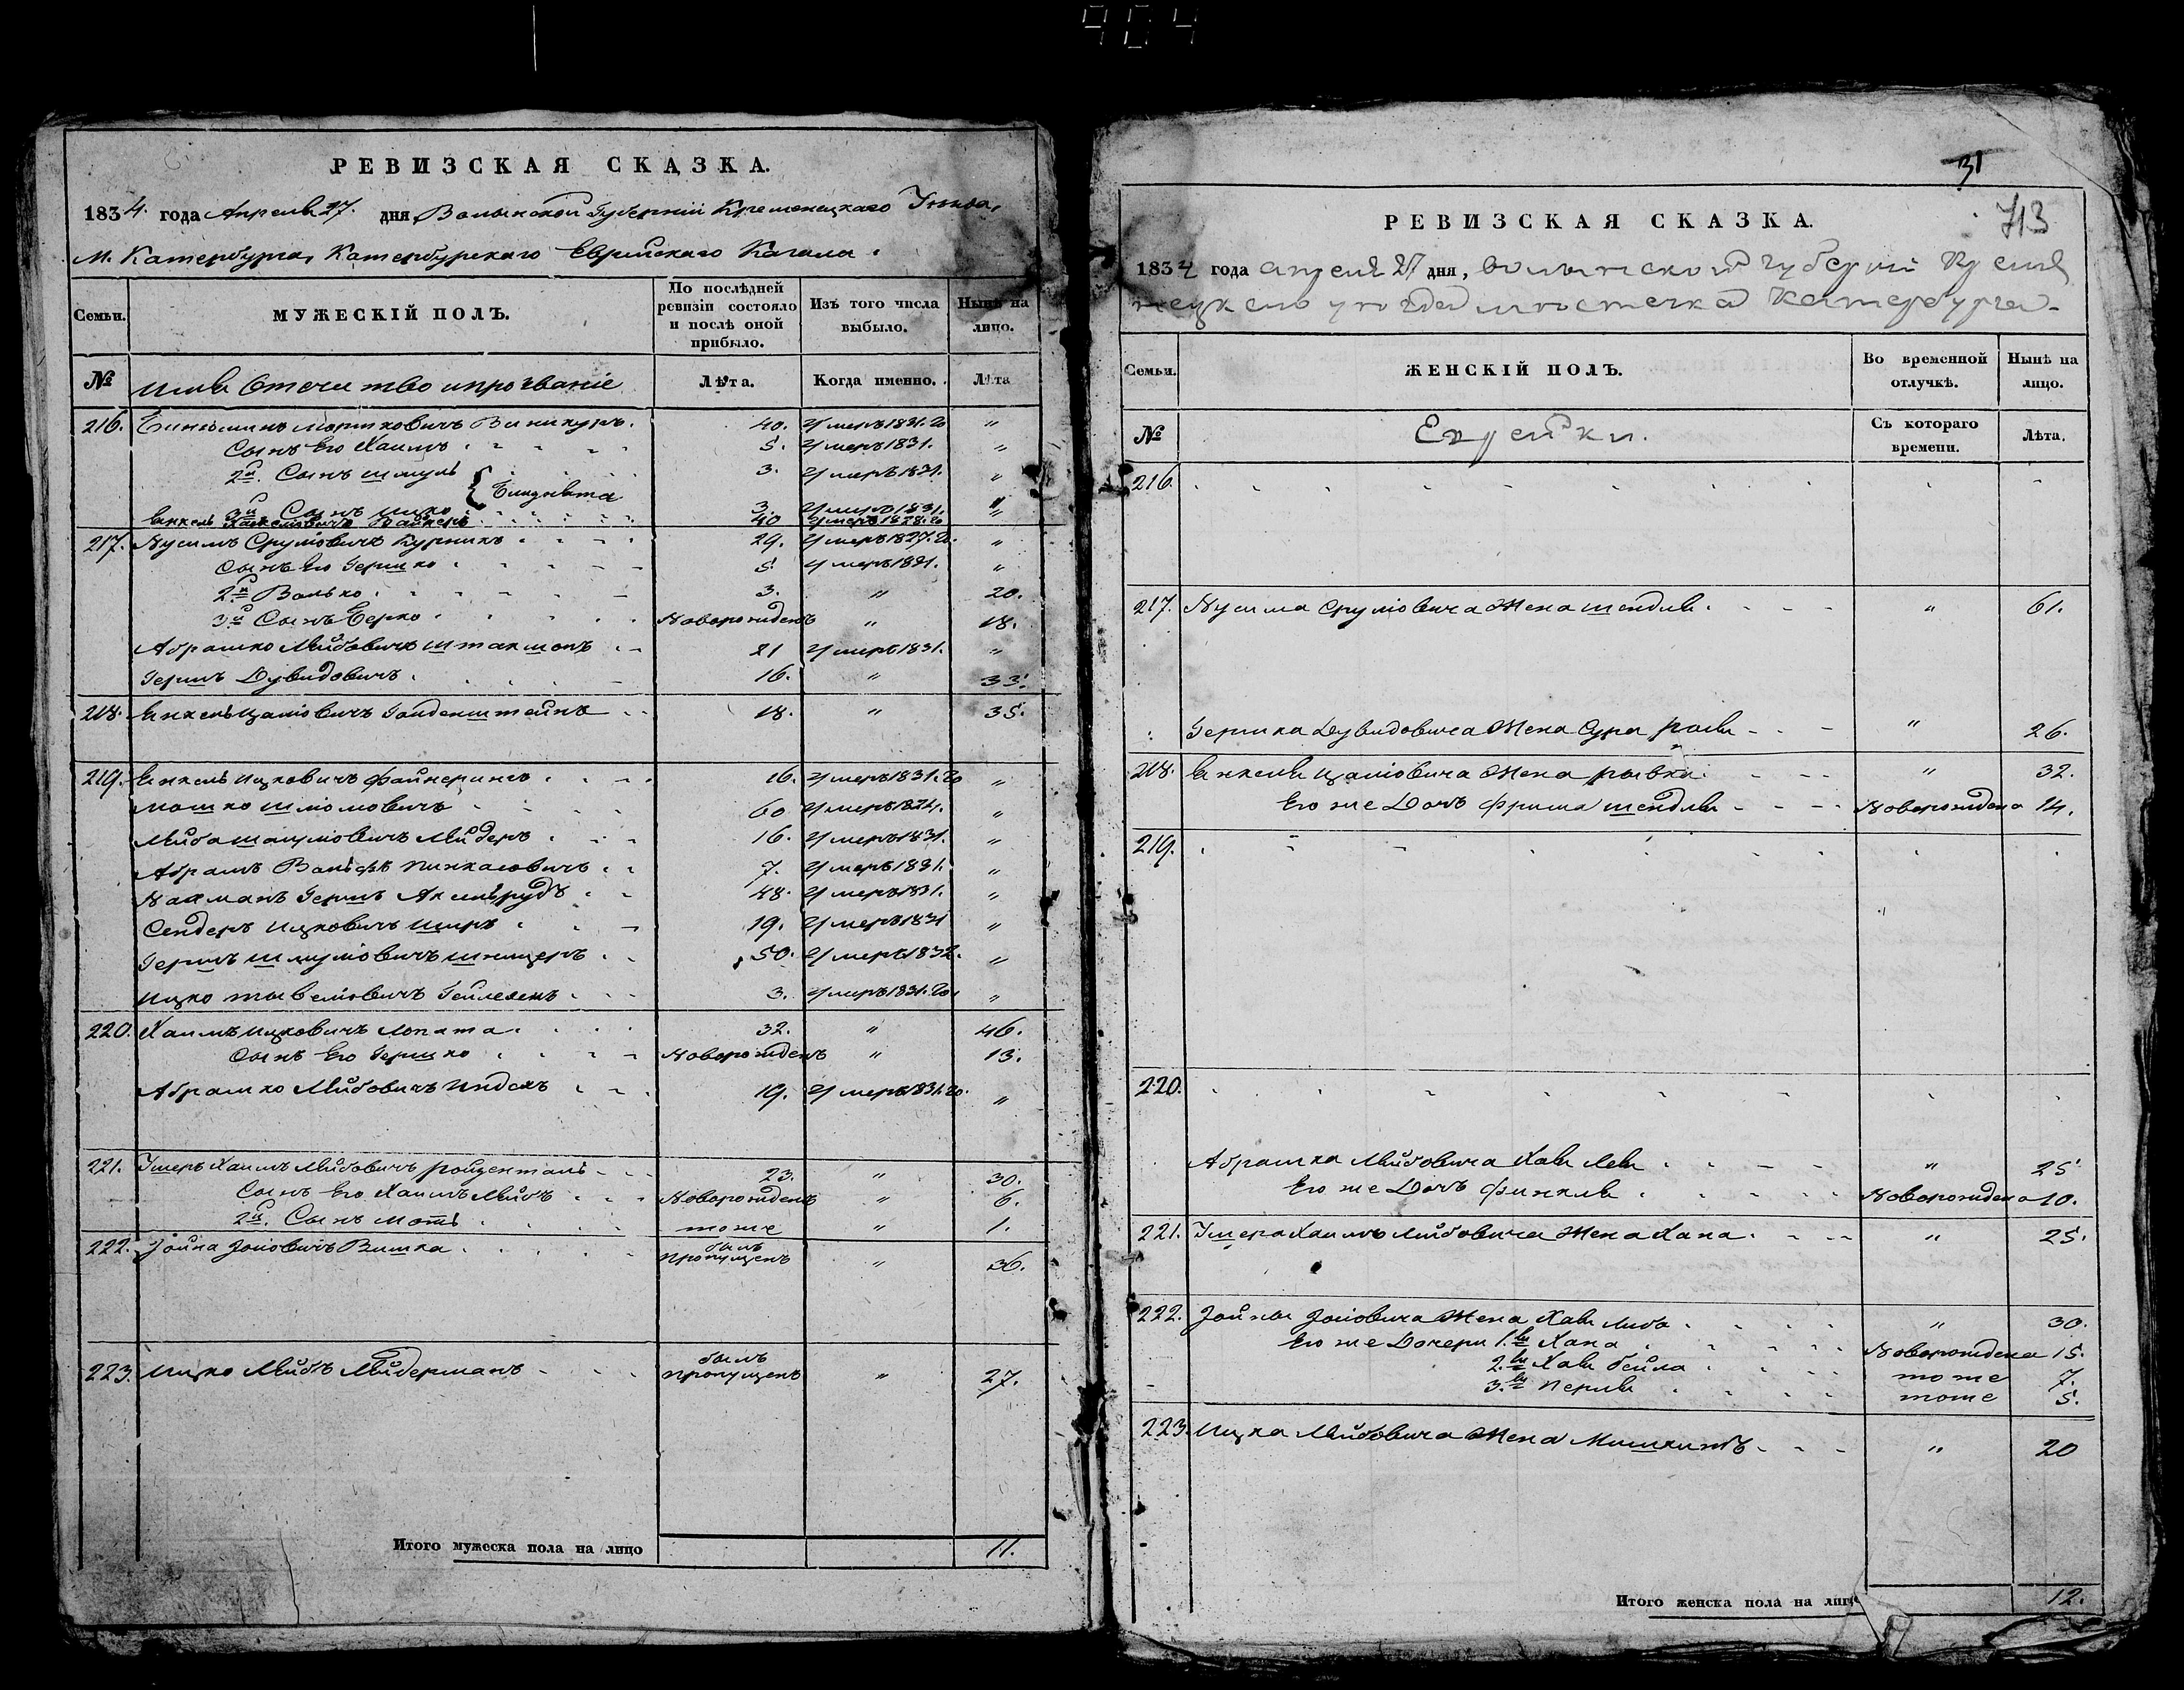 904
РЕВИЗСКАЯ СКАЗКА.
1834. года Апреля 27. дня, Волынской Губернии Кременецкаго Уезда,
м. Катербурга, Катербурскаго Еврейскаго Кагала.
Семьи.
МУЖЕСКІЙ ПОЛЪ.
По послѣдней ревизіи состояло и послѣ оной прибыло.
Изъ того числа выбыло.
Нынѣ на лицо.
№
имя Отечество и прозваніе
Лѣта.
Когда именно.
Лѣта
216. Мошковичъ Виникуръ. 40. Умеръ 1831. го "
Сынъ Его Хаимъ 5. Умеръ 1831. "
2й. Сынъ Шмуль 3. Умеръ 1831. "
{ Близнята
3й Сынъ Ицко 3. Умеръ 1831. "
Янкель 40 Умеръ 1828. го "
217. Нусимъ Сруліовичъ Курникъ 29. Умеръ 1827. го "
Сынъ Его Гершко 5. Умеръ 1831. "
2й Волько 3. " 20.
3й Сынъ Берко Новорожденъ " 18.
Абрашко Лейбовичъ 21 Умеръ 1831. "
Гершъ Дувидовичъ 16. " 33.
218. Янкель Голденштейнъ 18. " 35.
219. Янкель Ицковичъ Файнерингъ 16. Умеръ 1831. го "
Мошко Шломовичъ 60 Умеръ 1824. "
Лейба Лейдеръ 16. Умеръ 1831. "
Абрамъ Вольфъ Пинкасовичъ 7. Умеръ 1831. "
Нахманъ Гершъ Аксельрудъ 48. Умеръ 1831. "
Сендеръ Ицковичъ 19. Умеръ 1831 "
Гершъ Шмуліовичъ Шницеръ 50. Умеръ 1832. "
Ицко 3. Умеръ 1831. го "
220. Хаимъ Ицковичъ Лопата 32. " 46.
Сынъ Его Гершко Новорожденъ " 13.
Абрашко Лейбовичъ 19. Умеръ 1831. го. "
221. Хаимъ Лейбовичъ Ройзенталь 23. " 30.
Сынъ Его Хаимъ Лейбъ Новорожденъ " 6.
2й. Сынъ Мотъ тоже " 1.
222. Вишка былъ пропущенъ " 36.
223. Ицко Лейбъ Лейдерманъ былъ пропущенъ " 27.
Итого мужеска пола на лицо 11.
31
713
РЕВИЗСКАЯ СКАЗКА.
1834 года апреля 27 дня, волынской губерніи Кремя
нецкаго уезда местечка Катербурга.
Семьи.
ЖЕНСКІЙ ПОЛЪ.
Во временной отлучкѣ.
Нынѣ на лицо.
№
Еврейки.
Съ котораго времени.
Лѣта.
216.
217. Нусима Сруліовича Жена Шендля " 61.
Гершка Дувидовича Жена Сура Ройзя " 26.
218. Янкеля Жена Рывка " 32.
Его же Дочь Фрима Шендля Новорождена 14.
219.
220.
Абрашка Лейбовича Хая Лея " 25
Его же Дочь Финкля Новорождена 10.
221. Хаимъ Лейбовича Жена Хана " 25.
222. Жена Хая Либа " 30.
Его же Дочери 1.я Хана Новорождена 15.
2.я Хая Бейла тоже 7.
3.я Перля тоже 5.
223. Ицка Лейбовича Жена " 20
Итого женска пола на лицо 12.